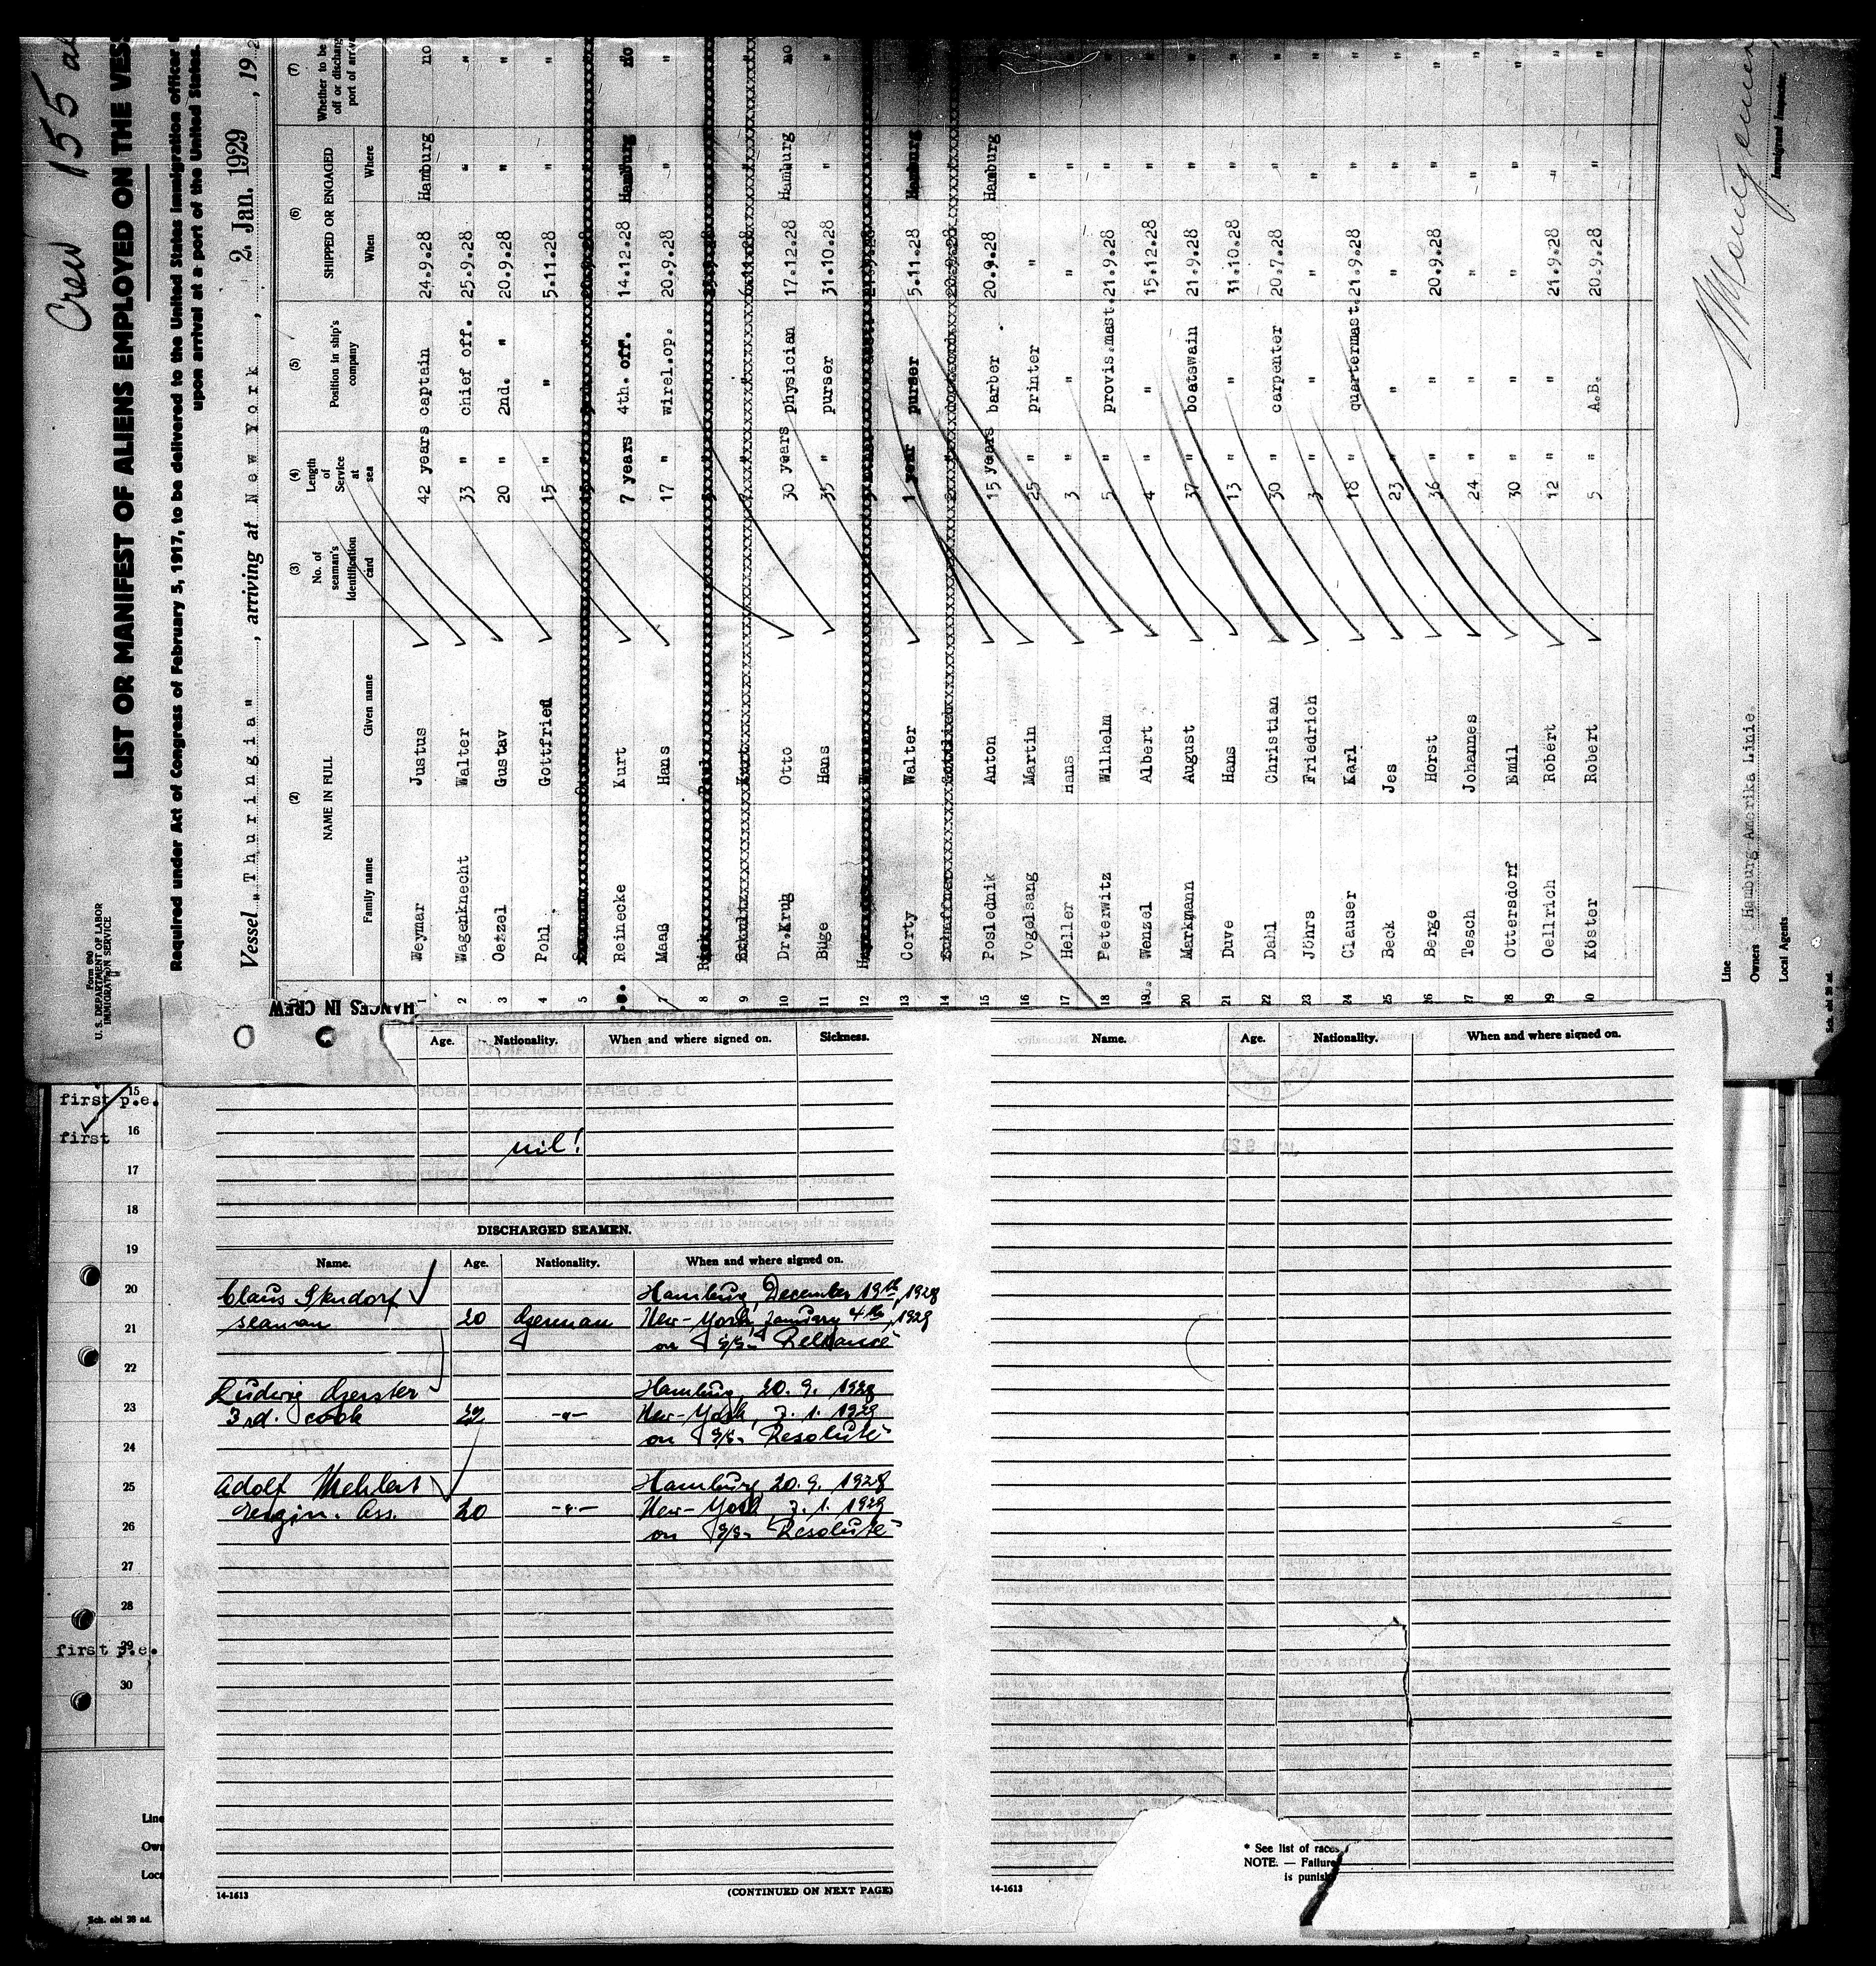 Crew 155
Form 680
U. S. DEPARTMENT OF LABOR
IMMIGRATION SERVICE
LIST OR MANIFEST OF ALIENS EMPLOYED ON THE VES
Required under Act of Congress of February 5, 1917, to be delivered to the United States immigration officer
upon arrival at a port of the United States.
Vessel "Thuringia", arriving at New York, 2. Jan. 1929, 192
(2) (3) (4) (5) (6) (7)
NAME IN FULL No. of seaman's Identification card Length of Service at sea Position in ship's company SHIPPED OR ENGAGED Whether to be off or discharg port of arriva
Family name Given name When Where
1 Weymar Justus 42 years captain 24.9.28 Hamburg no
2 Wagenknecht Walter 33 " chief off. 25.9.28 " "
3 Oetzel Gustav 20 " 2nd. " 20.9.28 " "
4 Pohl Gottfried 15 " " 5.11.28 " "
5
6 Reinecke Kurt 7 years 4th. off. 14.12.28 Hamburg no
7 Maaß Hans 17 " wirel.op. 20.9.28 " "
8
9 Kurt
10 Dr.Krug Otto 30 years physician 17.12.28 Hamburg no
11 Büge Hans 35 " purser 31.10.28 " "
12
13 Corty Walter 1 year purser 5.11.28 Hamburg "
14
15 Poslednik Anton 15 years barber 20.9.28 Hamburg "
16 Vogelsang Martin 25 " printer " " "
17 Heller Hans 3 " " " " "
18 Peterwitz Wilhelm 5 " provis.mast. 21.9.28 " "
19 Wenzel Albert 4 " " 15.12.28 " "
20 Markmann August 37 " boatswain 21.9.28 " "
21 Duve Hans 13 " " 31.10.28 " "
22 Dahl Christian 30 " carpenter 20.7.28 " "
23 Jöhrs Friedrich 3 " " " " "
24 Clauser Karl 18 " quartermast. 21.9.28 " "
25 Beck Jes 23 " " " " "
26 Berge Horst 36 " " 20.9.28 " "
27 Tesch Johannes 24 " " " " "
28 Ottersdorf Emil 30 " " " " "
29 Oellrich Robert 12 " " 21.9.28 " "
30 Köster Robert 5 " A.B. 20.9.28 " "
Line
Owners Hamburg-Amerika Linie.
Local Agents
Immigrant Inspector.
Sch. abi 28 ad.
HANGES IN CREW
Age. Nationality. When and where signed on. Sickness.
nil!
DISCHARGED SEAMEN.
Name. Age. Nationality. When and where signed on.
Claus Hamburg, December 19th, 1928
seaman 20 German New-York, January 4th, 1929
on S/S. "Reliance"
Ludwig Gerster Hamburg, 20. 9. 1928
3rd. cook 22 -"- New-York, 7. 1. 1929
on S/S. "Resolute"
Adolf Mehlert Hamburg, 20. 9. 1928
engin. Ass. 20 -"- New-York, 7. 1. 1929
on S/S. "Resolute"
14-1613 (CONTINUED ON NEXT PAGE)
Name. Age. Nationality. When and where signed on.
14-1613
* See list of races
NOTE. — Failure
is punish
15
first p.e.
16
first
17
18
19
20
21
22
23
24
25
26
27
28
29
first p.e.
30
Line
Own
Loca
Sch. abi 28 ad.